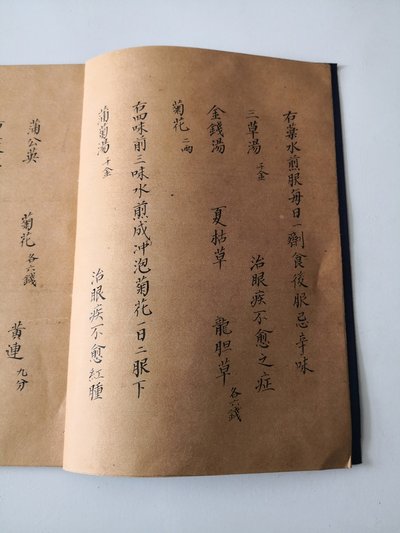 右藥水煎服每日一劑食後服忌辛味
三草湯 千金 治眼疾不愈之症
金錢湯 夏枯草 龍胆草 各六錢
菊花 二兩
右四味前三味水煎成冲泡菊花一日二服下
蒲菊湯 千金 治眼疾不愈紅腫
蒲公英 菊花 各六錢 黄連 九分